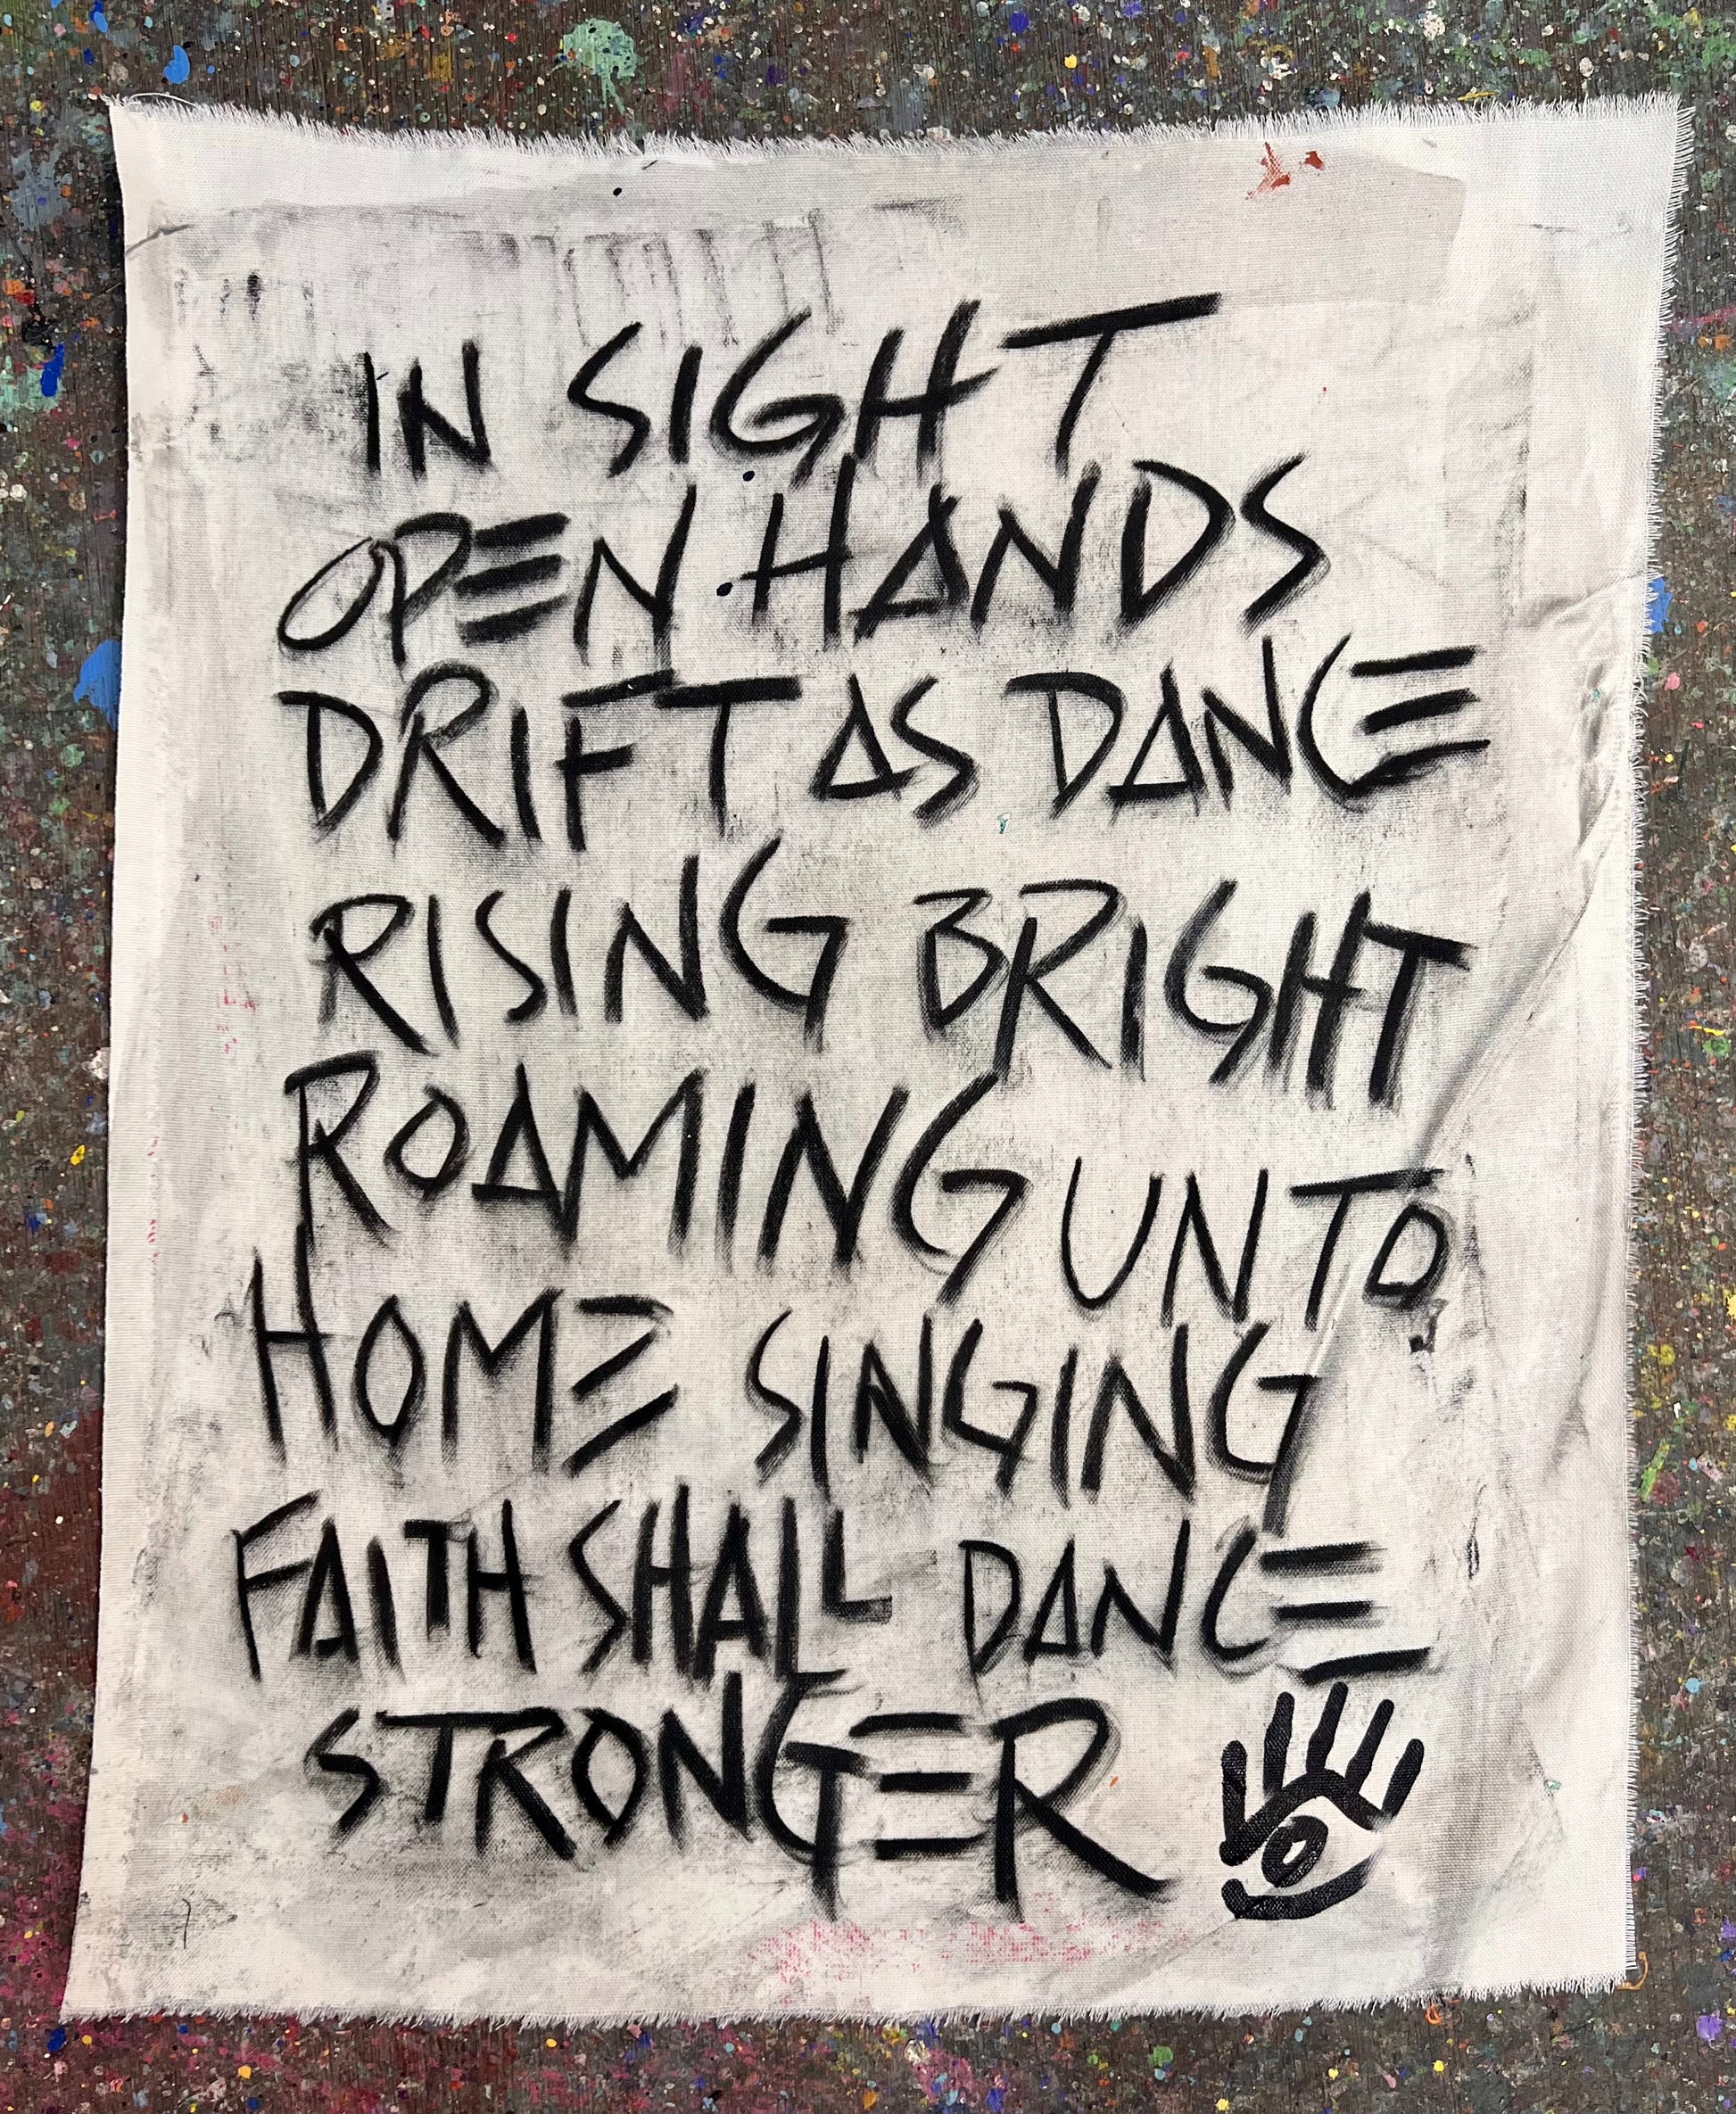 IN SIGHT
OPEN HANDS
DRIFT AS DANCE
RISING BRIGHT
ROAMING UNTO
HOME SINGING
FAITH SHALL DANCE
STRONGER